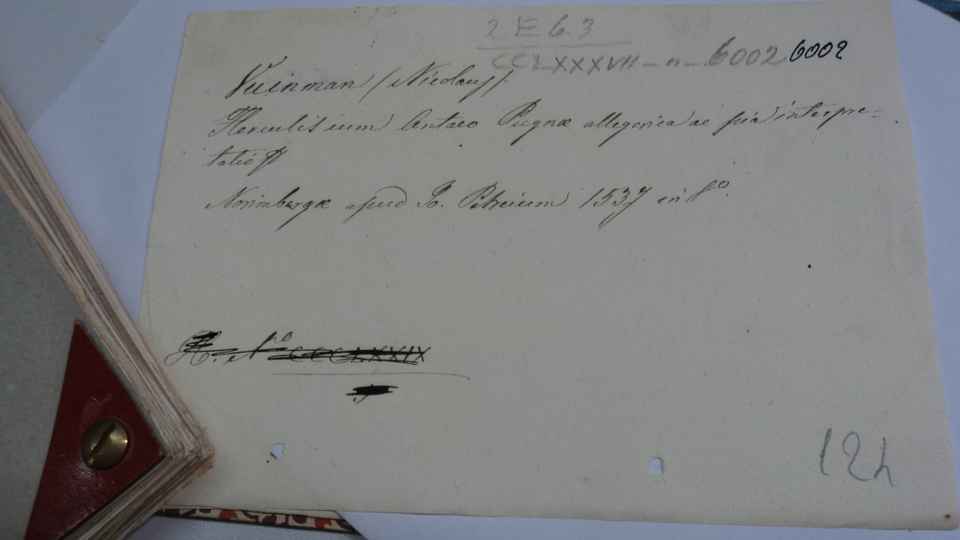 2 E 6.3
CCLXXXVII - n - 6002 6002
Vuinman (Nicolaus)
Herculis cum Antaeo Pugnæ allegorica ac pia interpre=
tatio
Norimbergæ apud Jo. Petreium 1537 in 8º.
H. Nº CCCLXXIX
124